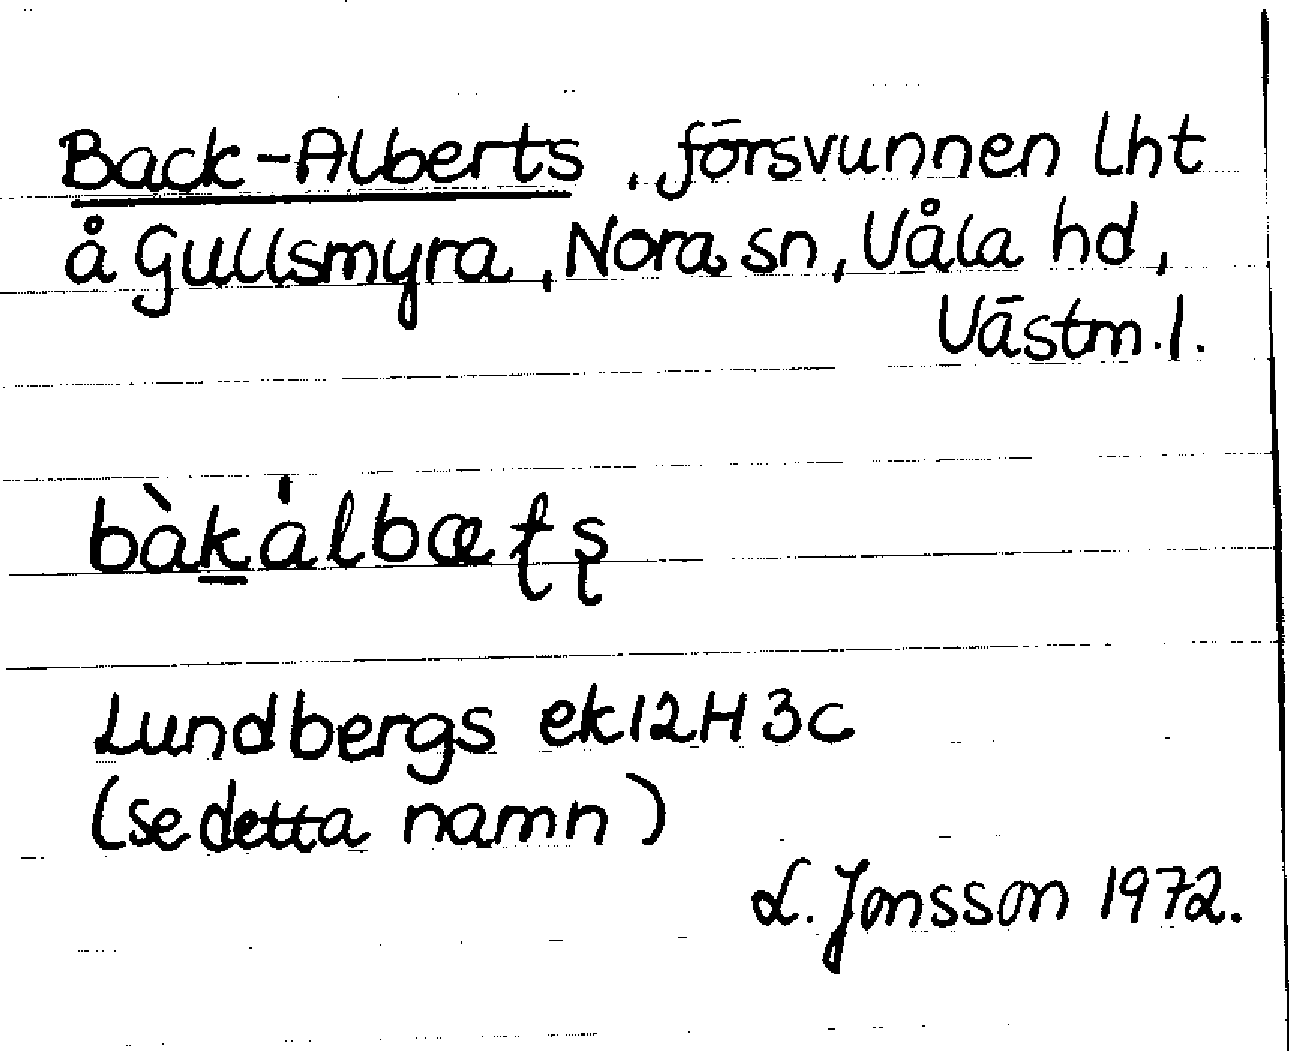 Back-Alberts, försvunnen lht
å Gullsmyra, Nora sn, Våla hd,
Västm.l.
bàkȧlbæʈʂ
Lundbergs ek12H3c
(se detta namn)
L. Jonsson 1972.